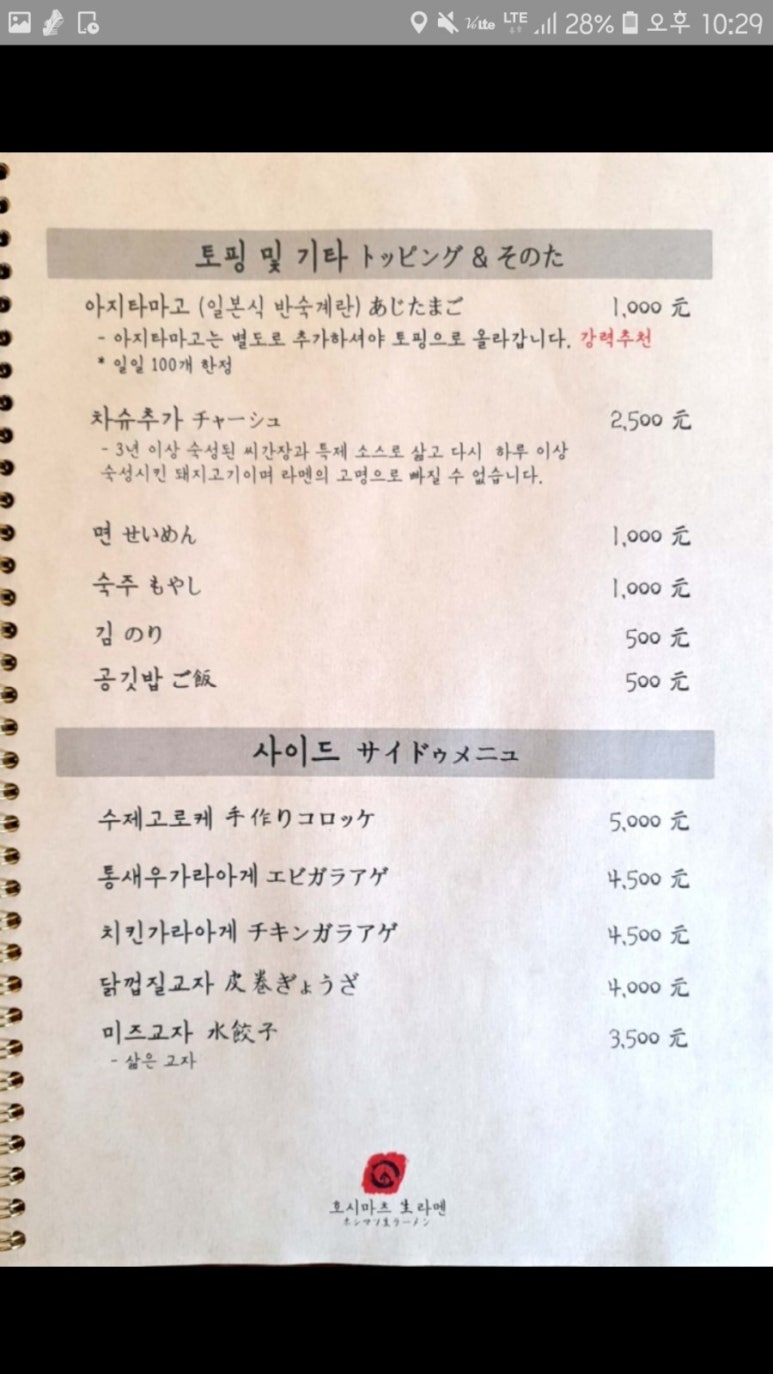 Vo lte LTE 28% 오후 10:29
토핑 및 기타 トッピング & そのた
아지타마고 (일본식 반숙계란) あじたまご 1,000 元
- 아지타마고는 별도로 추가하셔야 토핑으로 올라갑니다. 강력추천
* 일일 100개 한정
차슈추가 チャーシュ 2,500 元
- 3년 이상 숙성된 씨간장과 특제 소스로 삶고 다시 하루 이상
숙성시킨 돼지고기이며 라멘의 고명으로 빠질 수 없습니다.
면 せいめん 1,000 元
숙주 もやし 1,000 元
김 のり 500 元
공깃밥 ご飯 500 元
사이드 サイドゥメニュ
수제고로케 手作りコロッケ 5,000 元
통새우가라아게 エビガラアゲ 4,500 元
치킨가라아게 チキンガラアゲ 4,500 元
닭껍질교자 皮巻ぎょうざ 4,000 元
미즈교자 水餃子 3,500 元
- 삶은 교자
호시마츠 生라멘
ホシマツ生ラーメン